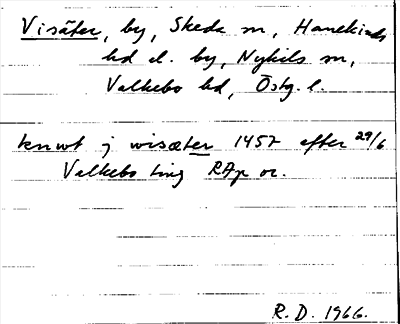 Visäter, by, Skeda sn, Hanekinds
hd el. by, Nykils sn,
Valkebo hd, Östg. l.
knwt j wisæter 1457 efter 29/6
Valkebo ting RAp or.
R.D. 1966.